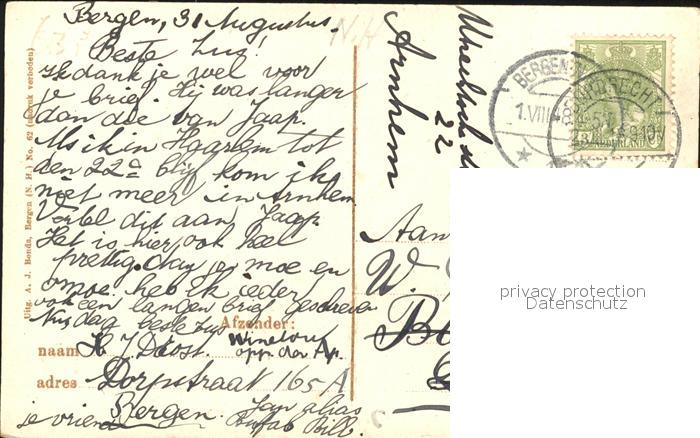 Bergen, 31 Augustus.
Beste Zus!
Ik dank je wel voor
je brief. Hij was langer
dan die van Jaap.
Als ik in Haarlem tot
den 22e blijf kom ik
niet meer in Arnhem
Vertel dit aan Jaap.
Het is hier ook heel
prettig. dag je moe en
omoe. heb ik ieder
ook een langen brief geschreven
Nu dag beste zus
Afzender:
naam H J Doost.
adres Dorpstraat 165A
Bergen.
je vriend
Jan alias
Buffalo Bill.
Uitg. A. J. Bonda, Bergen (N. H.) No. 62 (nadruk verboden)
N.H.
Utrechtsch
22
Arnhem
BERGEN
1.VIII
DORDRECHT
NEDERLAND
Aan
W.
privacy protection
Datenschutz